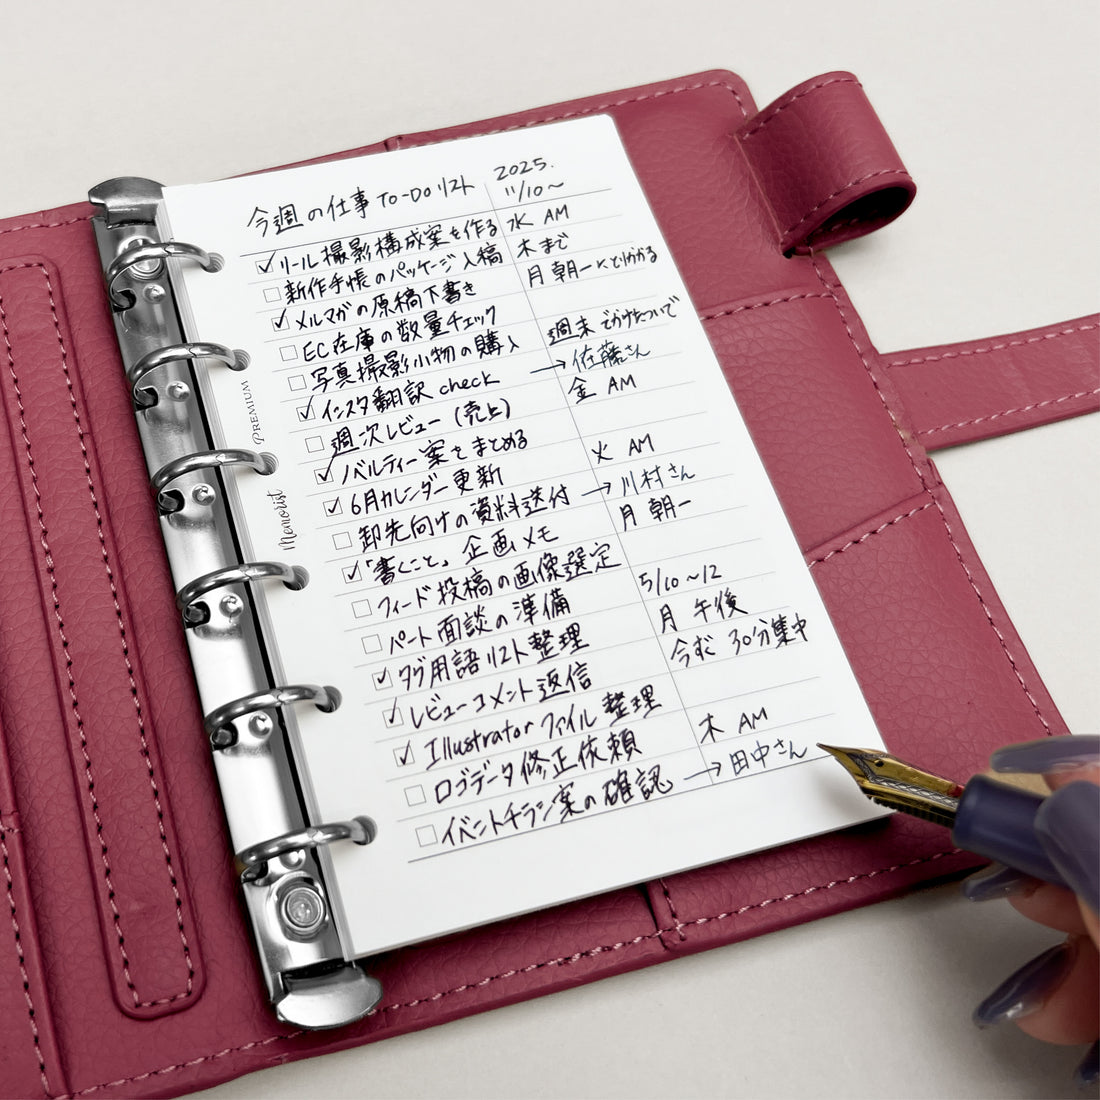 今週の仕事 TO-DOリスト 2025. 11/10〜
☑ リール撮影構成案を作る 水 AM
☐ 新作手帳のパッケージ入稿 木まで
☑ メルマガの原稿下書き 月 朝一 とりかかる
☐ EC在庫の数量チェック
☐ 写真撮影小物の購入 週末でかけたついで
☑ インスタ翻訳 check → 佐藤さん
☐ 週次レビュー(売上) 金 AM
☑ ノベルティー案をまとめる
☑ 6月カレンダー更新 火 AM
☐ 卸先向けの資料送付 → 川村さん
☑ 「書くこと」企画メモ 月 朝一
☐ フィード投稿の画像選定
☐ パート面談の準備 5/10〜12
☑ タグ用語リスト整理 月 午後
☑ レビューコメント返信 今すぐ 30分集中
☑ Illustratorファイル整理
☐ ロゴデータ修正依頼 木 AM
☐ イベントチラシ案の確認 → 田中さん
Memorist PREMIUM